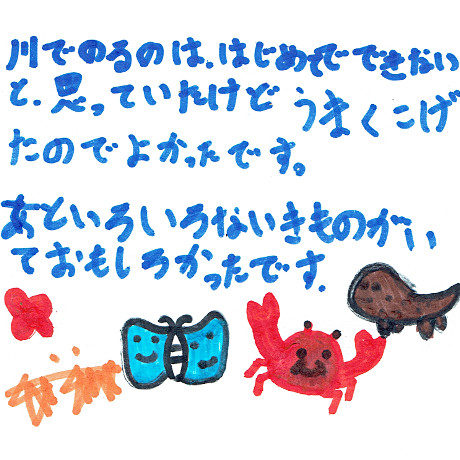 川でのるのは、はじめてでできない
と、思っていたけど うまくこげ
たのでよかったです。
あといろいろないきものがい
ておもしろかったです.